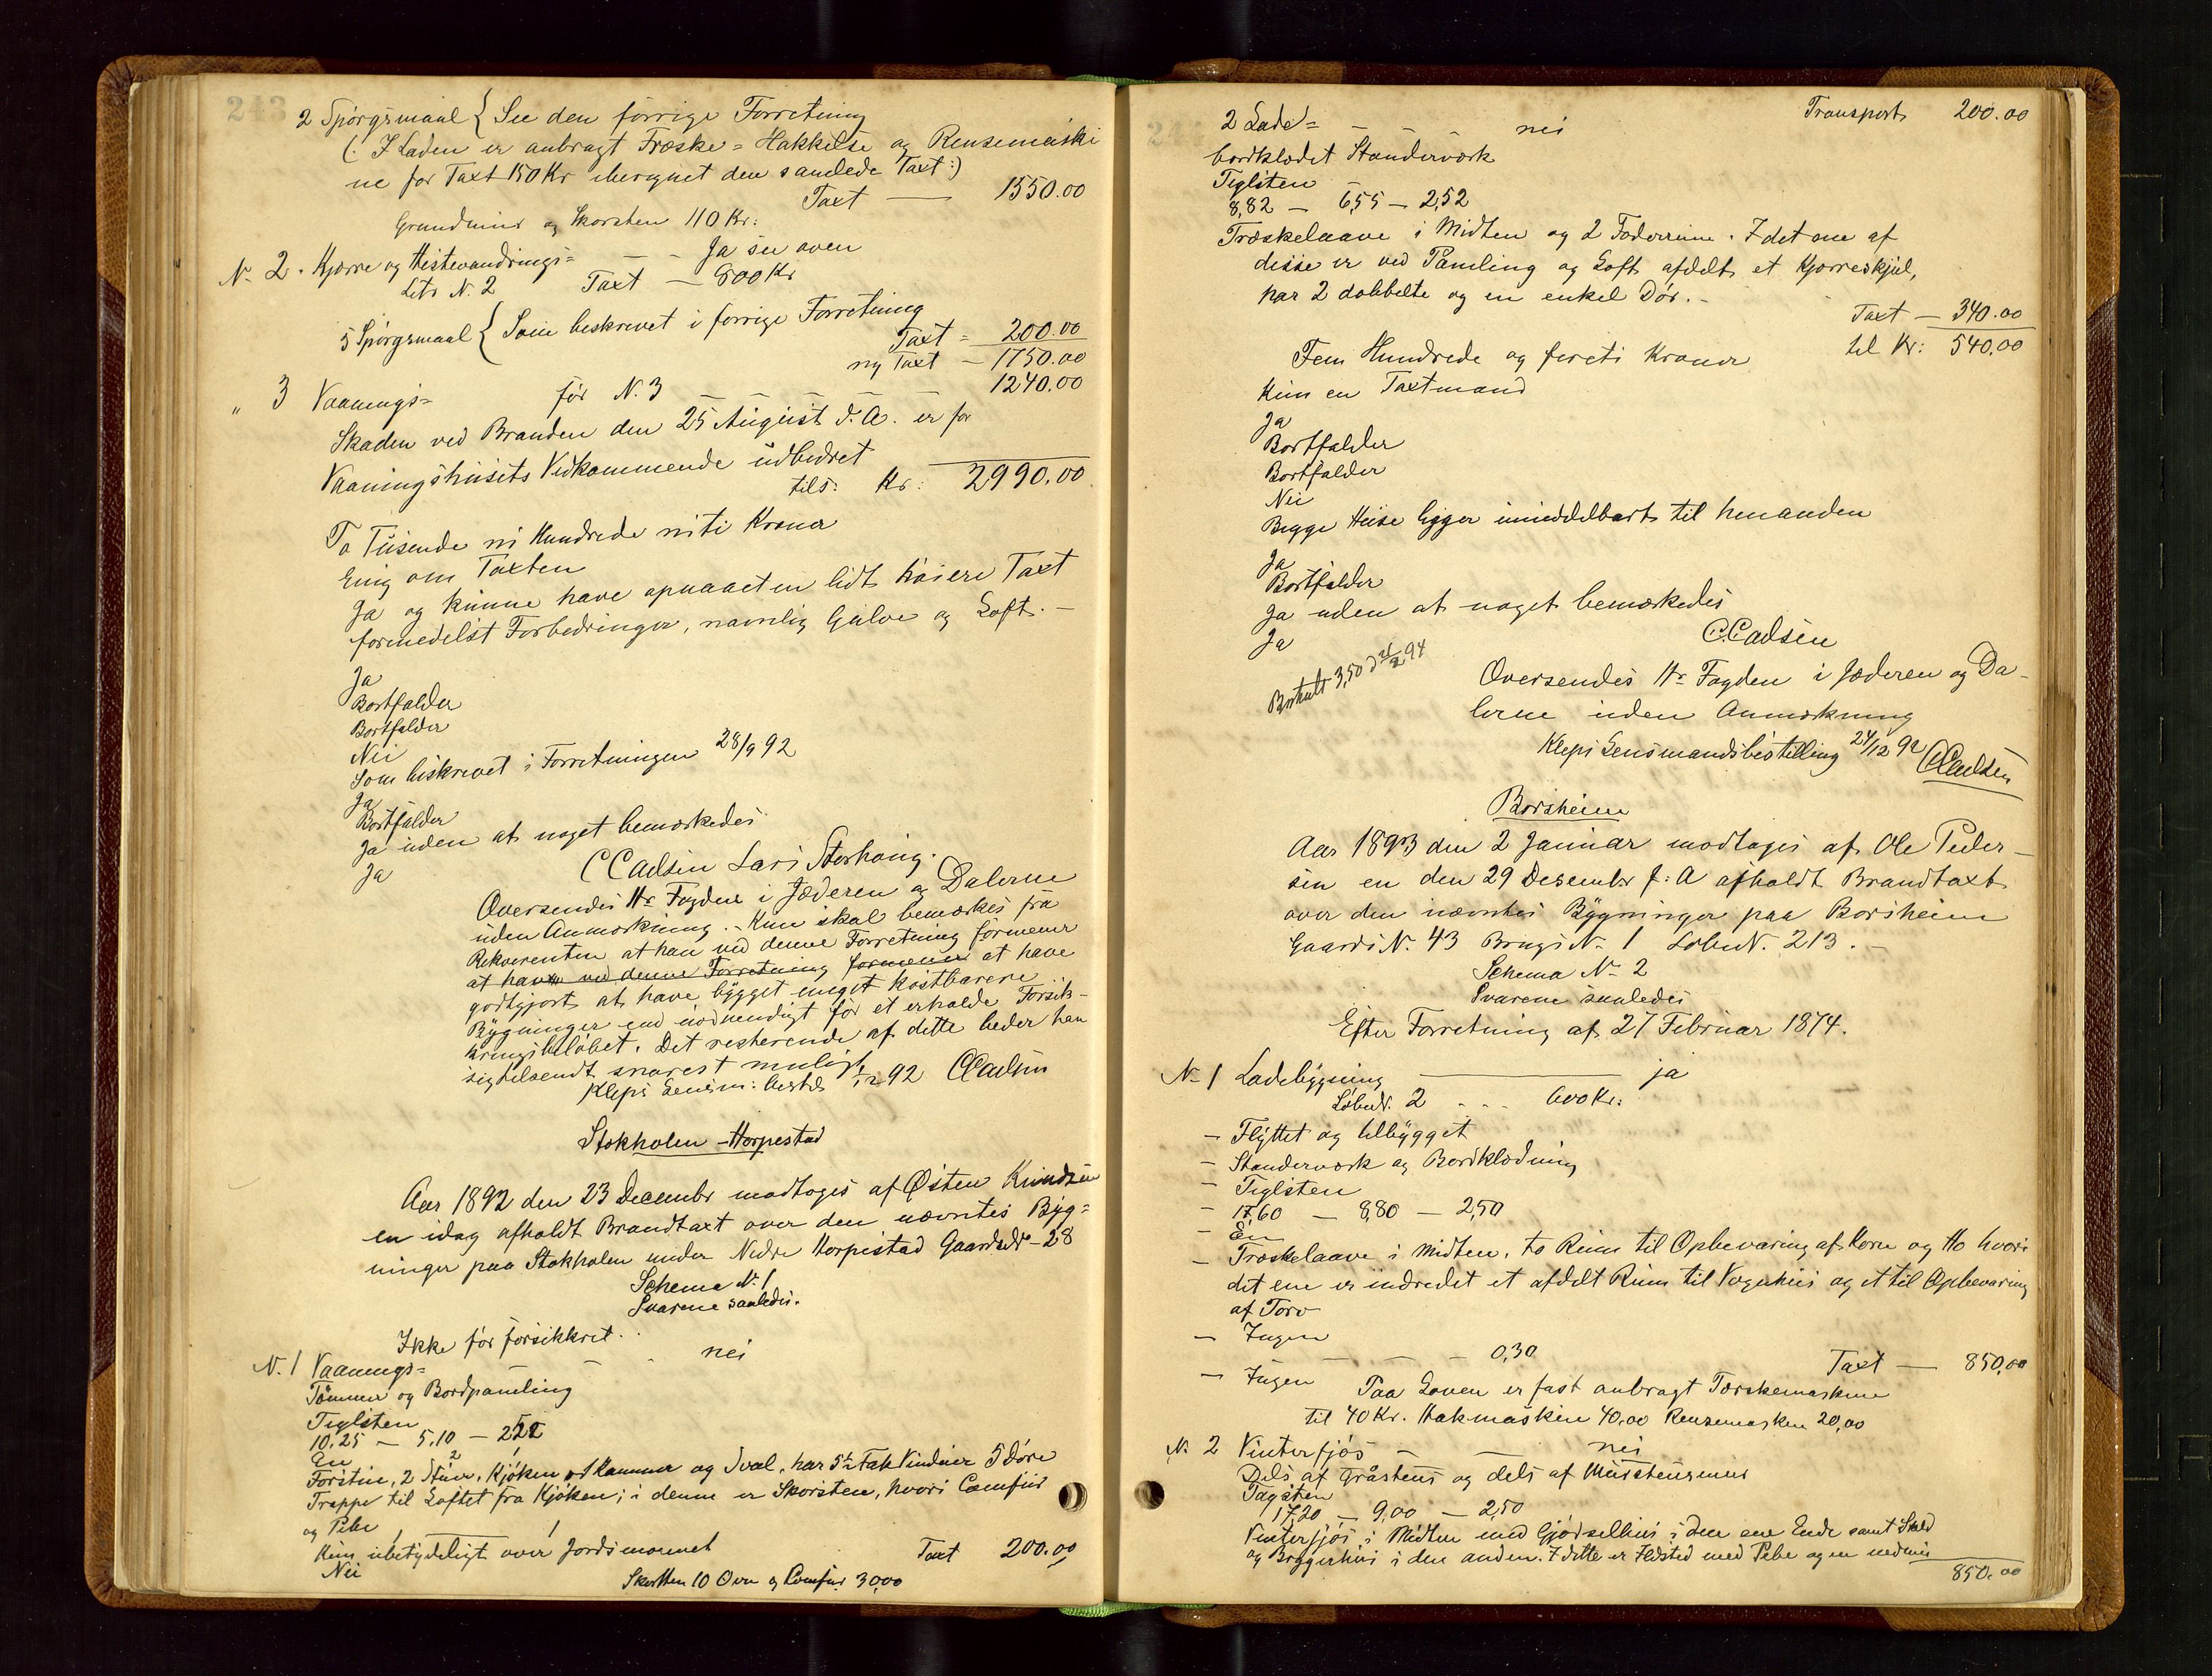 243
2 Spørgsmaal { See den forrige Forretning
(: I Laden er anbragt Træske= Hakkelse og Rensemaski
ne for Taxt 150 Kr iberegnet den samlede Taxt:)
Taxt — 1550.00
Grundmur og Skorsten 110 Kr:
N. 2. Kjørre og Hestevandrings= — - Ja see oven
Litr N. 2 Taxt — 800 Kr
5 Spørgsmaal { Som beskrevet i forrige Forretning
Taxt = 200.00
ny Taxt — 1750.00
" 3 Vaanings= før N. 3 — — — — 1240.00
Skaden ved Branden den 25 August d. A. er for
Vaaningshusets Vedkommende udbedret
tils: Kr: 2990.00
To Tusende ni Hundrede niti Kroner
Enig om Taxten
Ja og kunne have opnaaet en lidt høiere Taxt
formedelst Forbedringer, navnlig Gulve og Loft. —
Ja
Bortfalder
Bortfalder
Nei
Som beskrevet i Forretningen 28/9 92
Ja
Bortfalder
Ja uden at noget bemærkedes
Ja
C Cadsen Lars Storhaug.
Oversendes Hr Fogden i Jæderen og Dalerne
uden Anmærkning. - Kun skal bemærkes fra
Rekvirenten at han ved denne Forretning formener
at han ved denne Forretning formener at have
godtgjort at have bygget meget kostbarere
Bygninger end nødvendigt for et erholde Forsik-
kringsbeløbet. Det resterende af dette beder han
sig tilsendt snarest muligt
Kleps Lensm: bestil 1/12 92 CCadsen
Stokholen - Horpestad
Aar 1892 den 23 Decembr modtoges af Østen Knudsen
en idag afholdt Brandtaxt over den nævntes Byg=
ninger paa Stokholen under Nedre Horpestad Gaardsnr - 28
Schema N. 1
Svarene saaledes.
Ikke før forsikkret.
N. 1 Vaanings= — — - nei
Tømmer og Bordpaneling
Teglsten
10.25 — 5.10 — 2,52
En
Forstue, 2 Stuer, Kjøken, 1 Kammer og Sval, har 5½ Fak Vinduer 5 Døre
Trappe til Loftet fra Kjøken; i denne er Skorsten, hvori Comfur
og Pibe
Kun ubetydeligt over Jordsmonnet
Nei
Taxt 200.00
Skorsten 10 Ovn og Comfur 30,00
2 Lade= — — - nei Transport 200.00
bordklædet Standerværk
Teglsten
8,82 — 6,55 — 2,52
Træskelaave i Midten og 2 Foderrume. I det ene af
disse er ved Paneling og Loft afdelt et Kjærreskjul,
har 2 dobbelte og en enkel Dør. -
Taxt — 340.00
Fem Hundrede og foreti Kroner til Kr: 540.00
Kun en Taxtmand
Ja
Bortfalder
Bortfalder
Nei
Begge Huse ligger umiddelbart til hinanden
Ja
Bortfalder
Ja uden at noget bemærkedes
Ja
C.Cadsen
Oversendes Hr Fogden i Jæderen og Da-
lerne uden Anmærkning
Kleps Lensmandsbestilling 24/12 92 CCadsen
Borsheim
Aar 1893 den 2 Januar modtoges af Ole Peder-
sen en den 29 Desembr f: A afholdt Brandtaxt
over den nævntes Bygninger paa Borsheim
Gaards N. 43 Brugs N. 1 LøbeN. 213. —
Schema N. 2
Svarene saaledes
Efter Forretning af 27 Februar 1874.
N. 1 Ladebygning — ja
LøbeN. 2 - - - 600 Kr:
— Flyttet og tilbygget
— Standerværk og Bordklædning
— Teglsten
— 17,60 — 8,80 — 2,50
— En
— Træskelaave i Midten, to Rum til Opbevaring af Korn og Ho hvori
det ene er indredet et afdelt Rum til Vognhus og et til Opbevaring
af Torv
— Ingen
— — — 0,30
— Ingen Taxt — 850,00
Paa Loven er fast anbragt Tærskemaskine
til 40 Kr. Hakmaskin 40,00 Rensemaskin 20,00
N. 2 Vinterfjøs — — nei
Dels af Gråstens og dels af Murstensmur
Tagsten
17,20 — 9,00 — 2,50
Vinterfjøs i Midten med Gjødselhus i den ene Ende samt Skeld
og Bryggerhus i den anden. I dette er Ildsted med Pibe og en
850.00